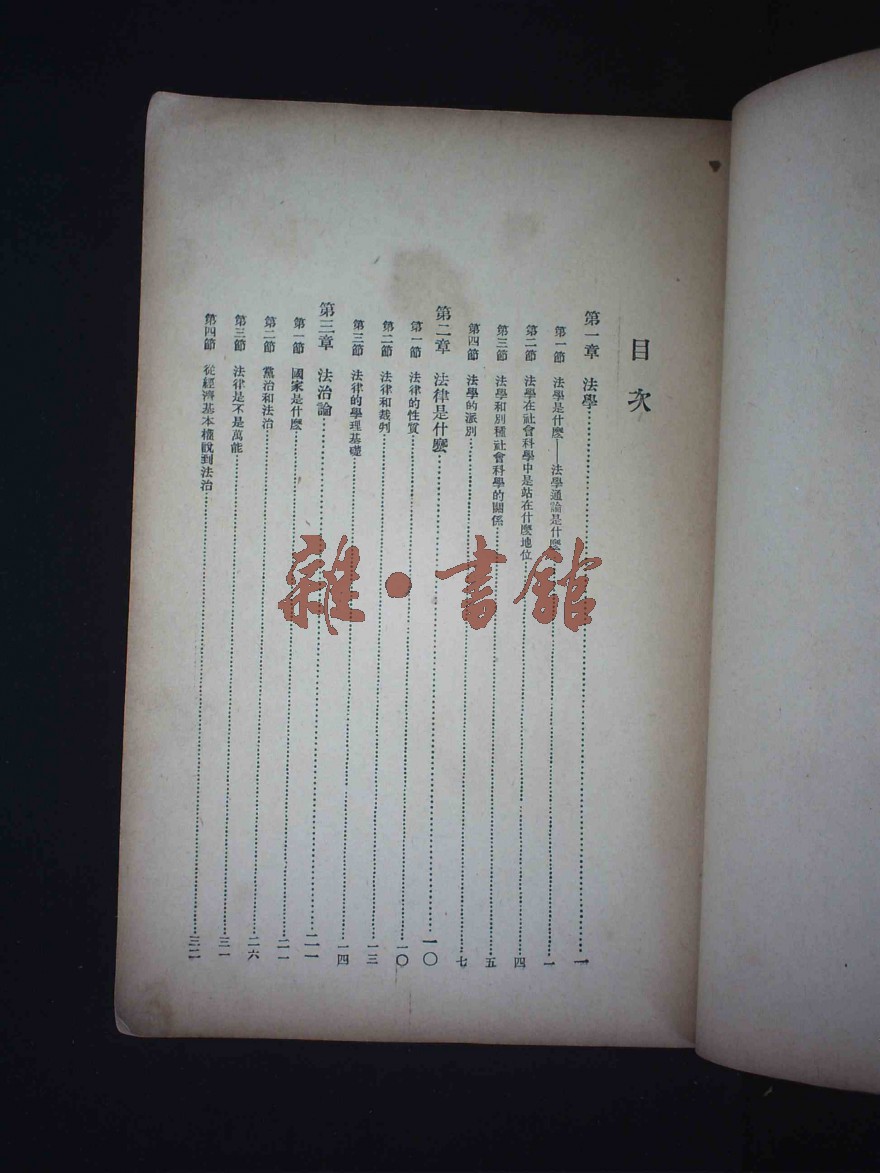 目次
第一章 法學 一
第一節 法學是什麼——法學通論是什麼 一
第二節 法學在社會科學中是站在什麼地位 四
第三節 法學和別種社會科學的關係 五
第四節 法學的派別 七
第二章 法律是什麼 一〇
第一節 法律的性質 一〇
第二節 法律和裁判 一三
第三節 法律的學理基礎 一四
第三章 法治論 二一
第一節 國家是什麼 二一
第二節 黨治和法治 二六
第三節 法律是不是萬能 三一
第四節 從經濟基本權說到法治 三二
雜·書館